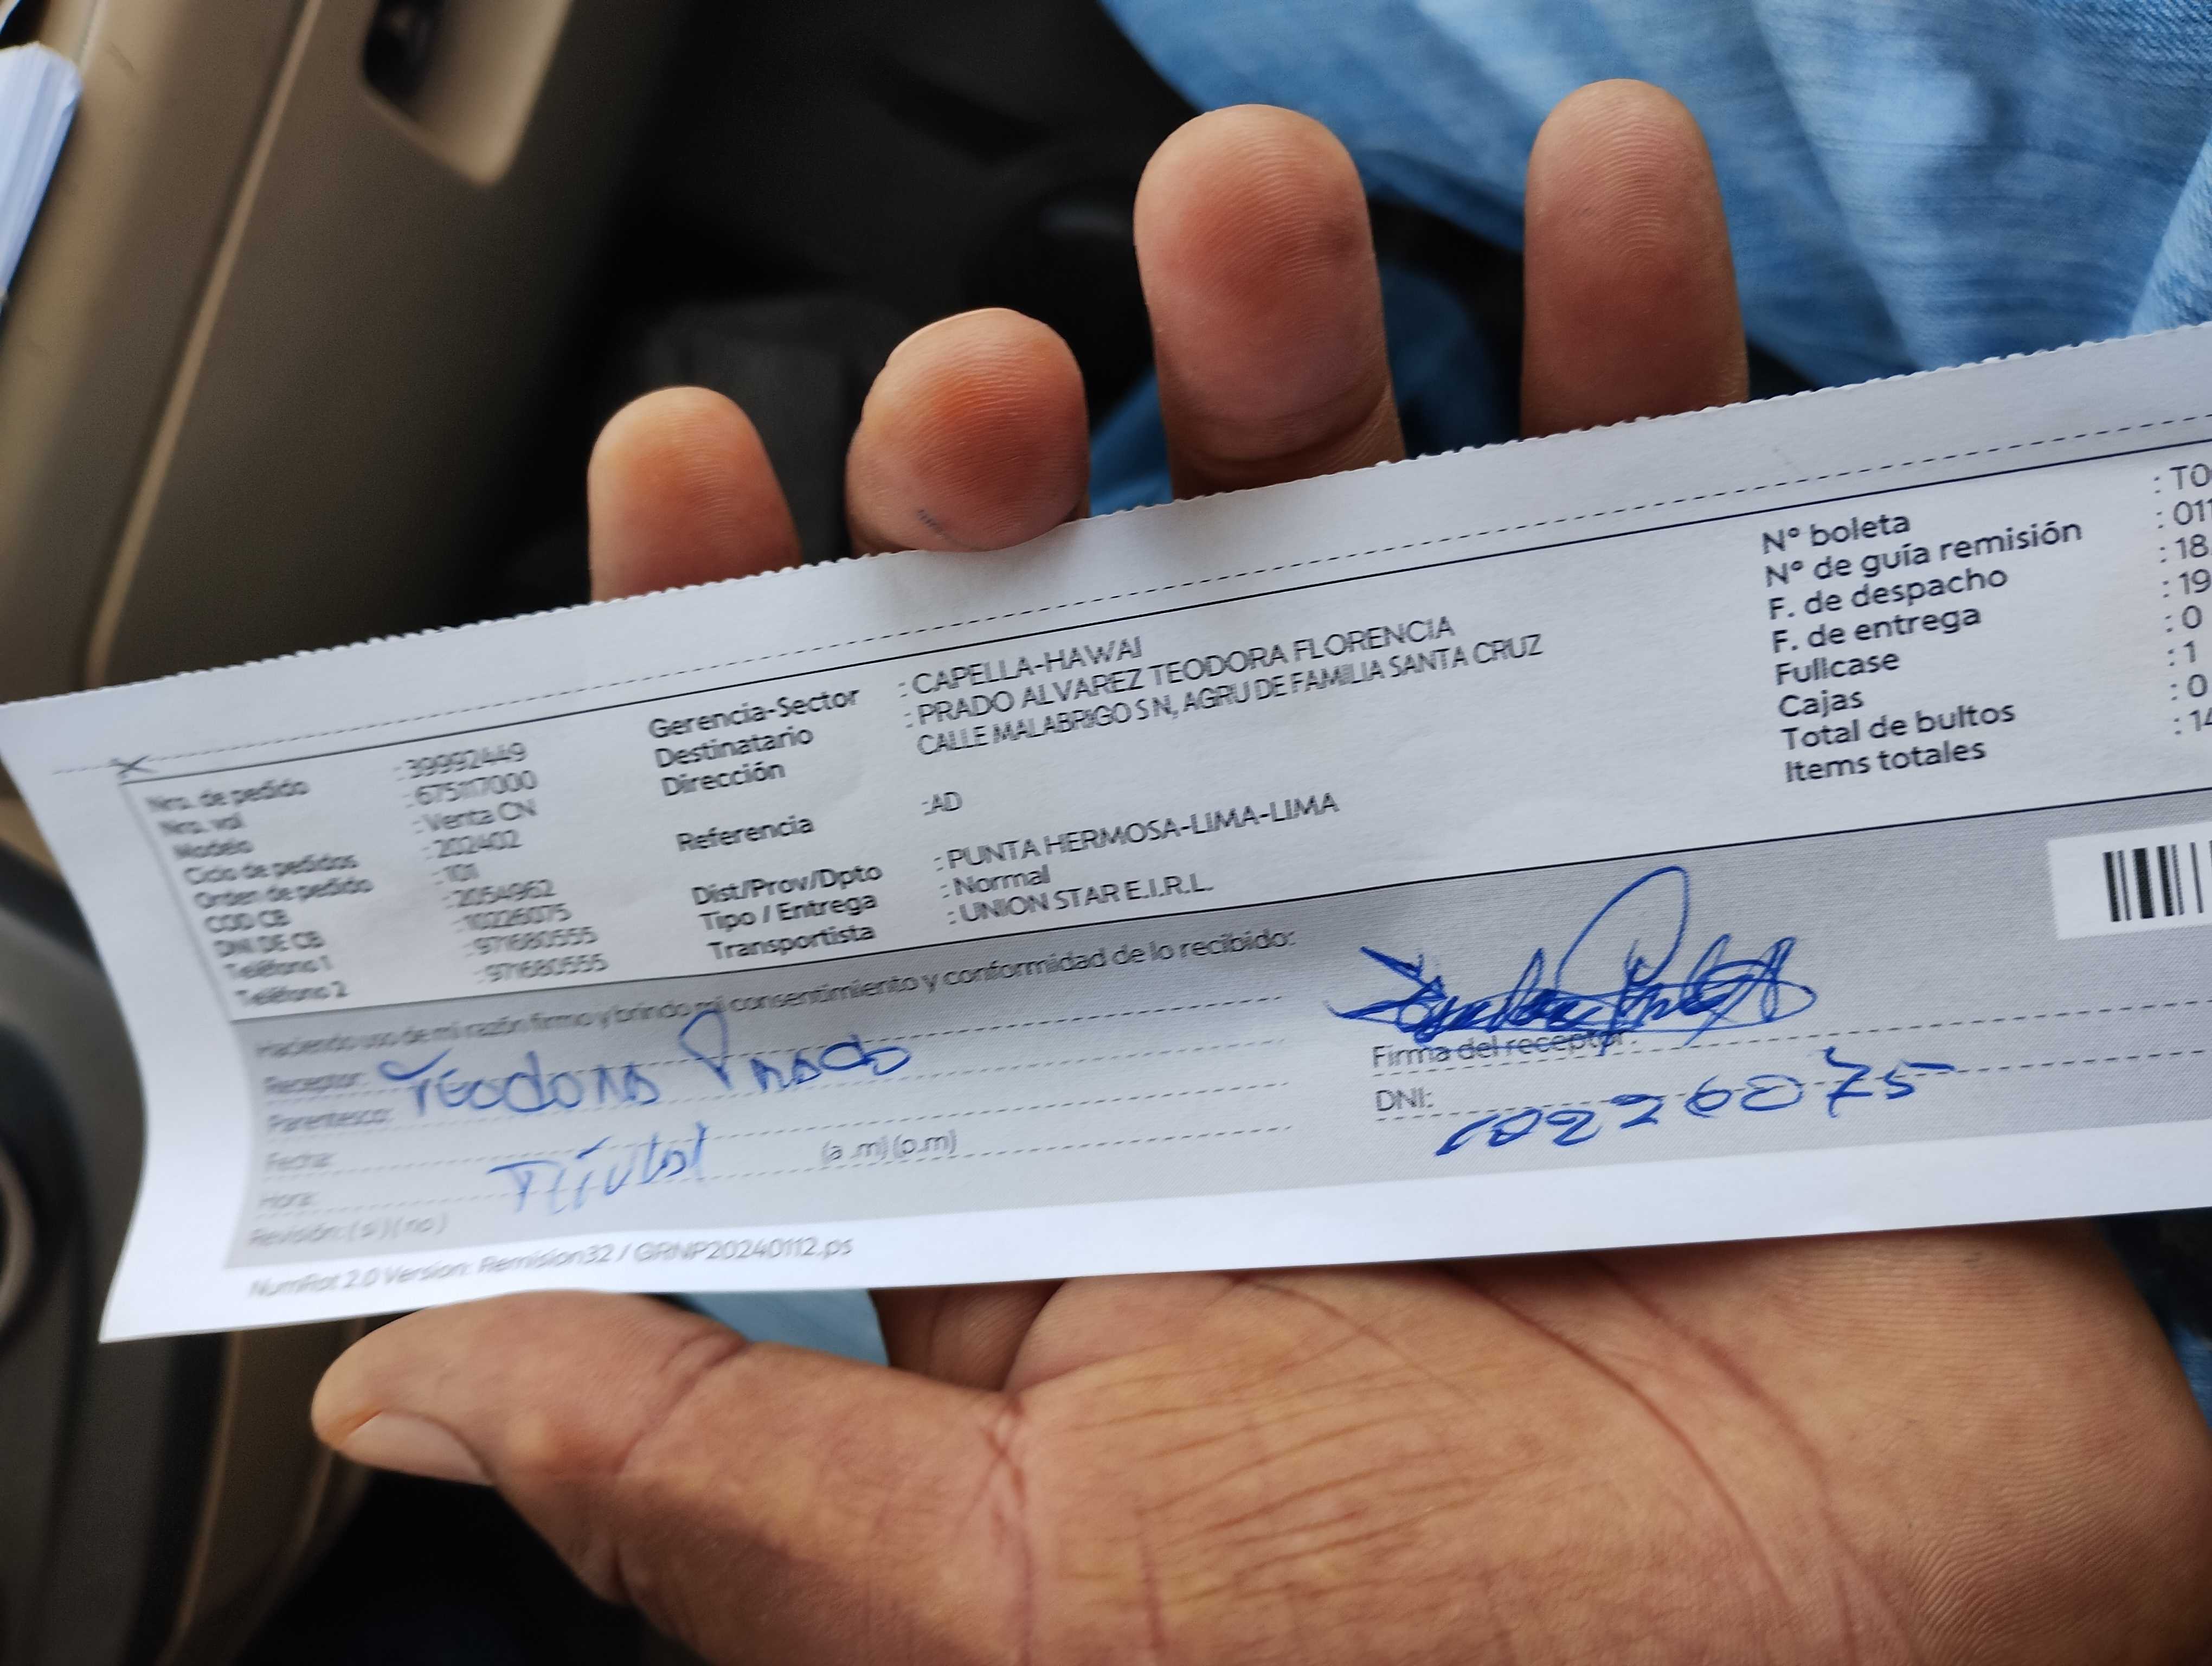 Nro. de pedido : 39992449
Nro. vol : 675117000
Modelo : Venta CN
Ciclo de pedidos : 202402
Orden de pedido : 101
COD CB : 2054962
DNI DE CB : 10226075
Teléfono 1 : 971680555
Teléfono 2 : 971680555
Gerencia-Sector : CAPELLA-HAWAI
Destinatario : PRADO ALVAREZ TEODORA FLORENCIA
Dirección CALLE MALABRIGO S N, AGRU DE FAMILIA SANTA CRUZ
Referencia :AD
Dist/Prov/Dpto : PUNTA HERMOSA-LIMA-LIMA
Tipo / Entrega : Normal
Transportista : UNION STAR E.I.R.L.
N° boleta : TO
N° de guía remisión : 011
F. de despacho : 18
F. de entrega : 19
Fullcase : 0
Cajas : 1
Total de bultos : 0
Items totales : 14
Haciendo uso de mi razón firmo y brindo mi consentimiento y conformidad de lo recibido:
Receptor: Teodora Prado
Parentesco:
Fecha:
Hora: Titular (a .m) (p.m)
Revisión: ( si ) ( no )
Firma del receptor:
DNI: 10226075
NumRot 2.0 Version: Remision32 / GRNP20240112.ps